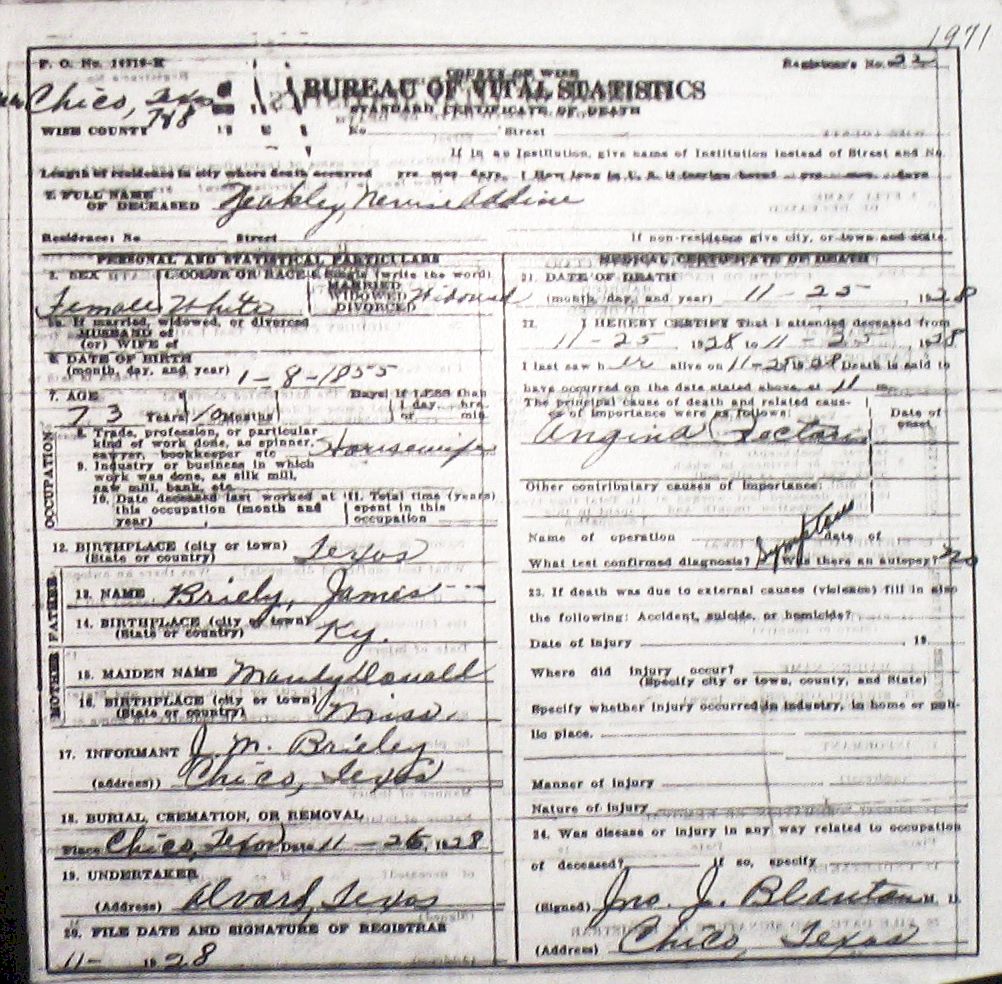 1971
F. O. No. 14719-K
COUNTY OF WISE
Registrar's No. 22
Chico, Texas
BUREAU OF VITAL STATISTICS
748
STANDARD CERTIFICATE OF DEATH
WISE COUNTY No Street
If in an Institution, give name of Institution instead of Street and No.
Length of residence in city where death occurred yrs mos days. How long in U. S. if foreign born? yrs mos. days
2. FULL NAME
OF DECEASED Yeakley, Addine
Residence: No Street If non-residence give city, or town and state.
PERSONAL AND STATISTICAL PARTICULARS
3. SEX 4. COLOR OR RACE 5. Single (write the word)
MARRIED
WIDOWED Widowed
DIVORCED
Female White
5a. If married, widowed, or divorced
HUSBAND of
(or) WIFE of
6. DATE OF BIRTH
(month, day, and year) 1-8-1855
7. AGE Days If LESS than
1 day, hrs.
73 Years 10 Months or min.
OCCUPATION
8. Trade, profession, or particular
kind of work done, as spinner, Housewife
sawyer, bookkeeper etc
9. Industry or business in which
work was done, as silk mill,
saw mill, bank, etc.
10. Date deceased last worked at 11. Total time (years)
this occupation (month and spent in this
year) occupation
12. BIRTHPLACE (city or town) Texas
(State or country)
FATHER
13. NAME Briely, James
14. BIRTHPLACE (city or town)
(State or country) Ky.
MOTHER
15. MAIDEN NAME Mandy Donald
16. BIRTHPLACE (city or town)
(State or country) Miss.
17. INFORMANT J. M. Brieley
(address)) Chico, Texas
18. BURIAL, CREMATION, OR REMOVAL
Place Chico, Texas Date 11-26, 1928
19. UNDERTAKER
(Address) Alvard, Texas
20. FILE DATE AND SIGNATURE OF REGISTRAR
11- 1928
MEDICAL CERTIFICATE OF DEATH
21. DATE OF DEATH
(month, day, and year) 11-25 1928
22. I HEREBY CERTIFY That I attended deceased from
11-25 1928 to 11-25, 1928
I last saw her alive on 11-25 1928 Death is said to
have occurred on the date stated above, at 11 m.
The principal cause of death and related caus-
es of importance were as follows: Date of
onset
Angina Pectoris
Other contributary causes of importance:
Name of operation date of
What test confirmed diagnosis? Symptoms Was there an autopsy? no
23. If death was due to external causes (violence) fill in also
the following: Accident, suicide, or homicide?
Date of injury 19
Where did injury occur?
(Specify city or town, county, and State)
Specify whether injury occurred in industry, in home or pub-
lic place.
Manner of injury
Nature of injury
24. Was disease or injury in any way related to occupation
of deceased? If so, specify
(Signed) Jno. J. Blanton M. D.
(Address) Chico, Texas